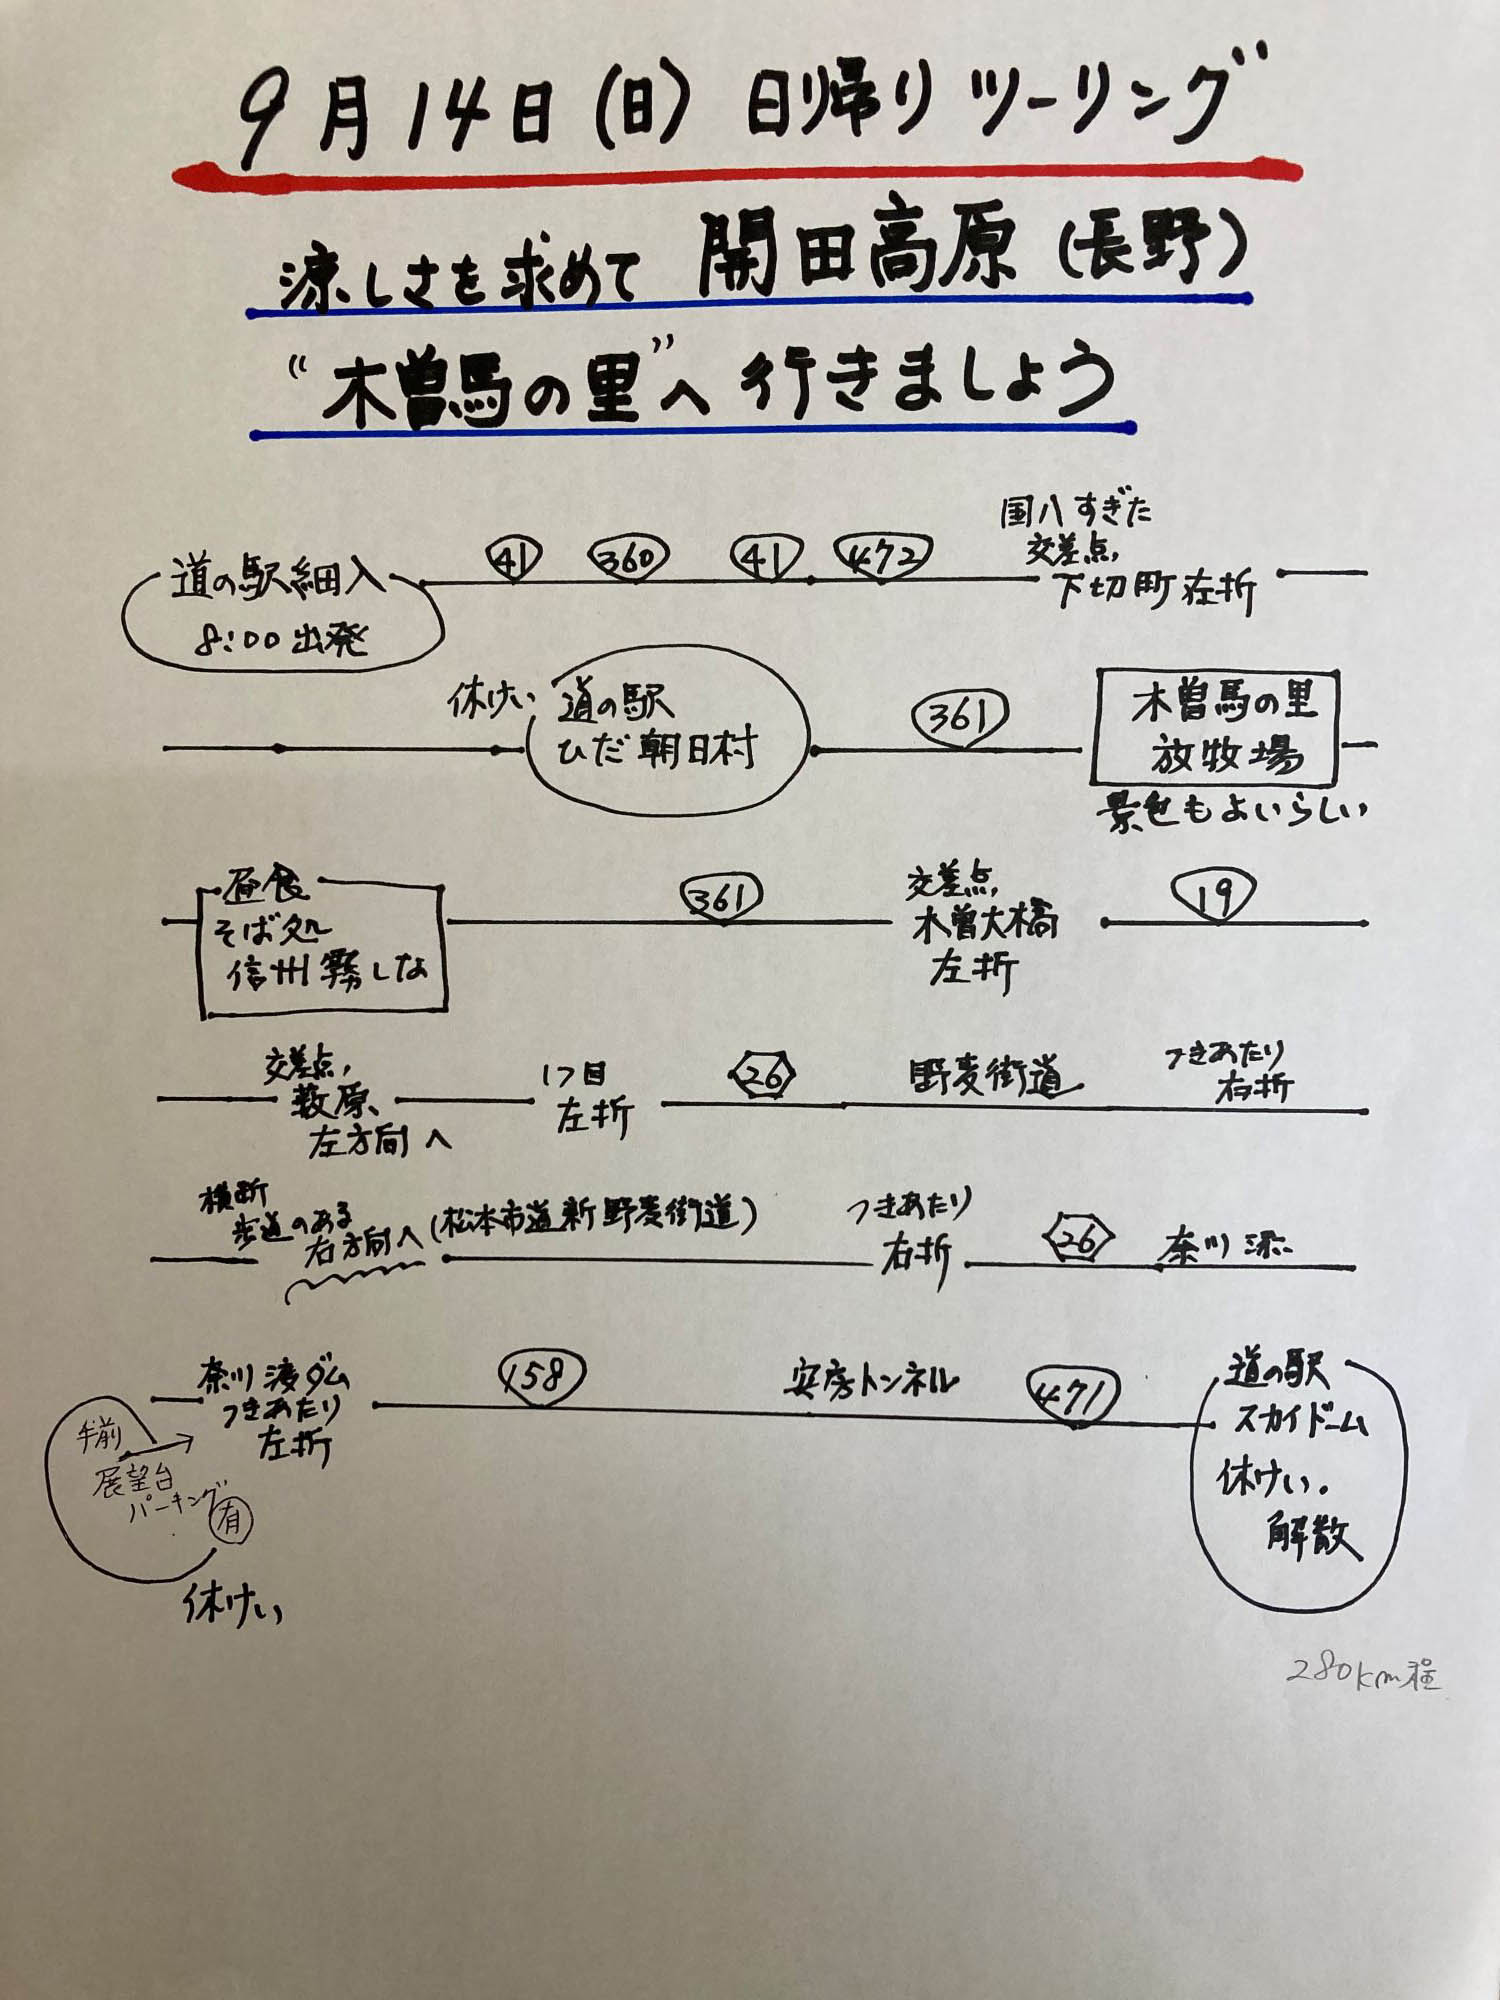 9月14日(日) 日帰りツーリング
涼しさを求めて 開田高原(長野)
“木曽馬の里”へ行きましょう
道の駅細入
8:00出発
41
360
41
472
国八すぎた
交差点,
下切町左折
休けい
道の駅
ひだ朝日村
361
木曽馬の里
放牧場
景色もよいらしい
昼食
そば処
信州霧しな
361
交差点,
木曽大橋
左折
19
交差点,
薮原、
左方向へ
1つ目
左折
26
野麦街道
つきあたり
右折
横断
歩道のある
右方向へ
(松本市道新野麦街道)
つきあたり
右折
26
奈川
奈川渡ダム
つきあたり
左折
手前
展望台
パーキング
有
休けい
158
安房トンネル
471
道の駅
スカイドーム
休けい.
解散
280km程